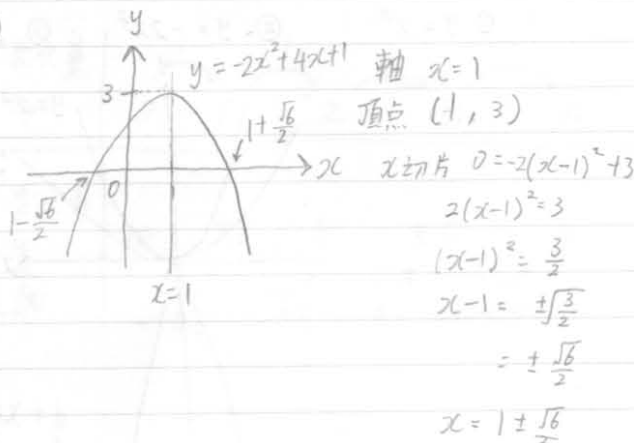 y
y = -2x²+4x+1
3
1+√6/2
x
0
1-√6/2
x=1
軸 x=1
頂点 (1, 3)
x切片 0=-2(x-1)²+3
2(x-1)²=3
(x-1)²= 3/2
x-1= ±√(3/2)
= ± √6/2
x= 1 ± √6/2